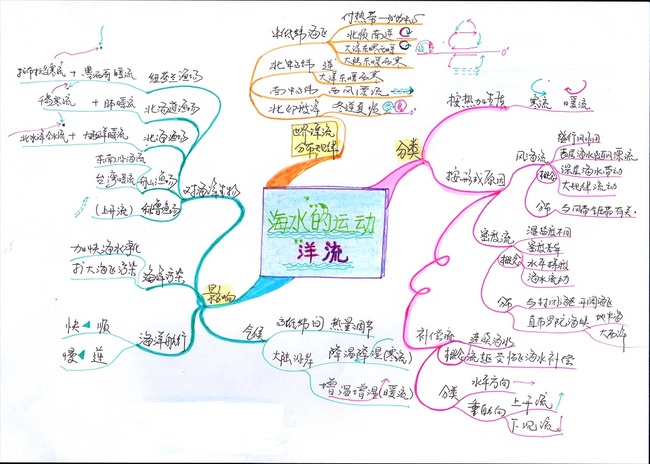 海水的运动
洋流
分类
按热力性质
寒流
暖流
按形成原因
风海流
盛行风作用
概念
表层海水随风漂流
深层海水带动
大规模流动
分布
与风带气压带有关
密度流
概念
温盐度不同
密度差异
水平梯度
海水流动
分布
与封闭海区
直布罗陀海峡
地中海
大西洋
补偿流
概念
连续海水
流抵
海水补偿
分类
水平方向
垂直方向
上升流
下沉流
世界洋流
分布规律
中低纬海区
北顺南逆
大洋东暖西寒
北中高纬
逆
大洋东暖西寒
南中高纬
西风漂流
北印度洋
冬逆夏顺
影响
对海洋生物
纽芬兰渔场
拉布拉多寒流 + 墨西哥暖流
北海道渔场
千岛寒流 + 日本暖流
北海渔场
北大西洋暖流
舟山渔场
东南沿海流
台湾暖流
秘鲁渔场
(上升流)
海洋污染
加快海水净化
扩大海区污染
海洋航行
快 顺
慢 逆
气候
高低纬间
热量调节
大陆沿岸
降温降湿(寒流)
增温增湿(暖流)